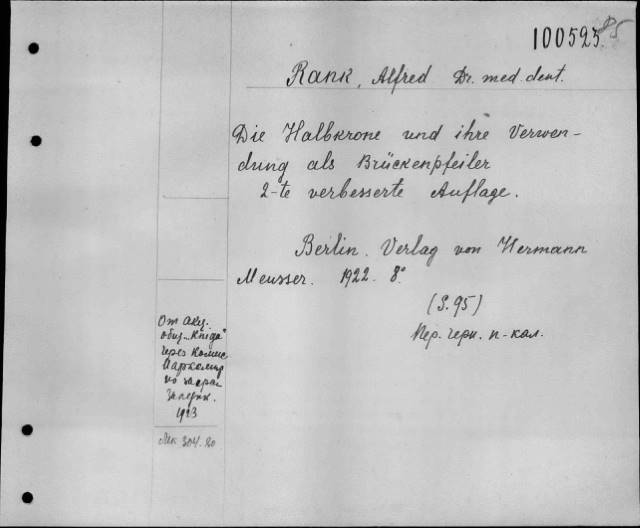 100523
85
Rank, Alfred Dr. med. dent.
Die Halbkrone und ihre Verwen-
dung als Brückenpfeiler
2-te verbesserte Auflage.
Berlin. Verlag von Hermann
Meusser. 1922. 8°
(S. 95)
Пер. черн. п-кол.
От Акц.
общ. „Книга"
через Комис
Наркомпр
по загран
закупк.
1923